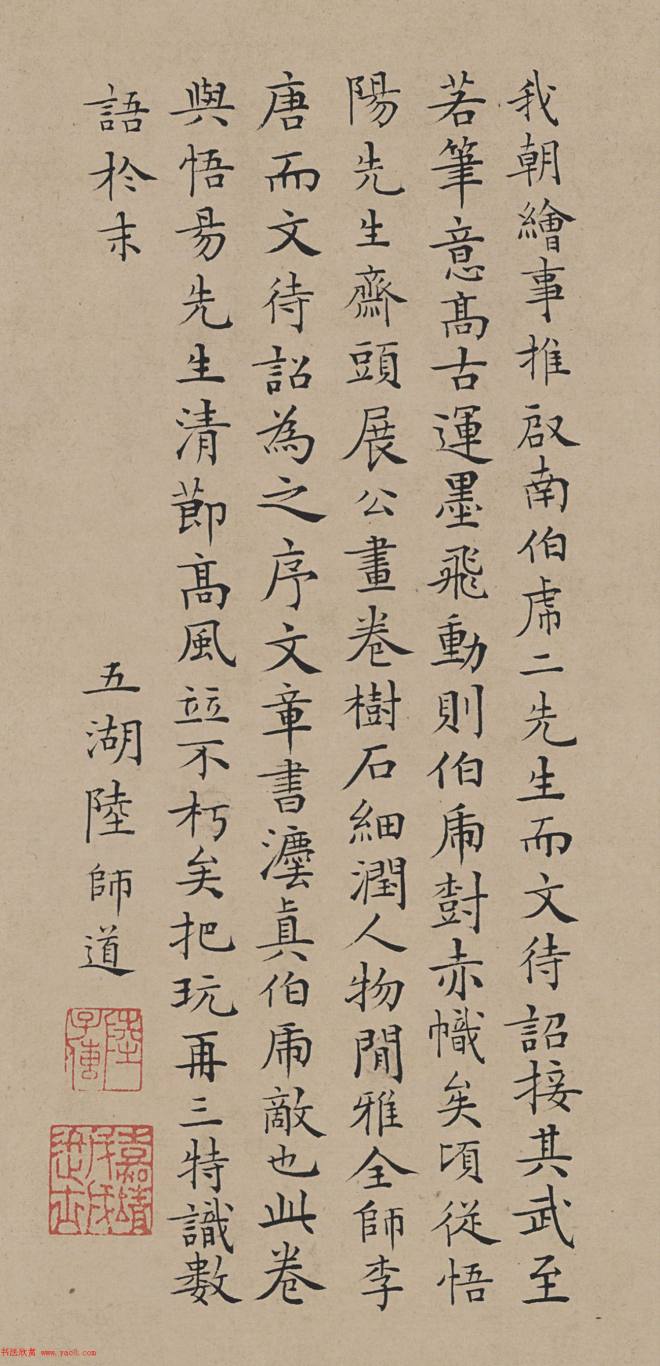 我朝繪事推啟南伯虎二先生而文待詔接其武至
若筆意髙古運墨飛動則伯虎樹赤幟矣頃從悟
陽先生齋頭展公畫卷樹石細潤人物閒雅全師李
唐而文待詔為之序文章書灋真伯虎敵也此卷
與悟昜先生清節髙風竝不朽矣把玩再三特識數
語於末
五湖陸師道
陸子傳
嘉靖戊戌進士
书法欣赏 www.yac8.com